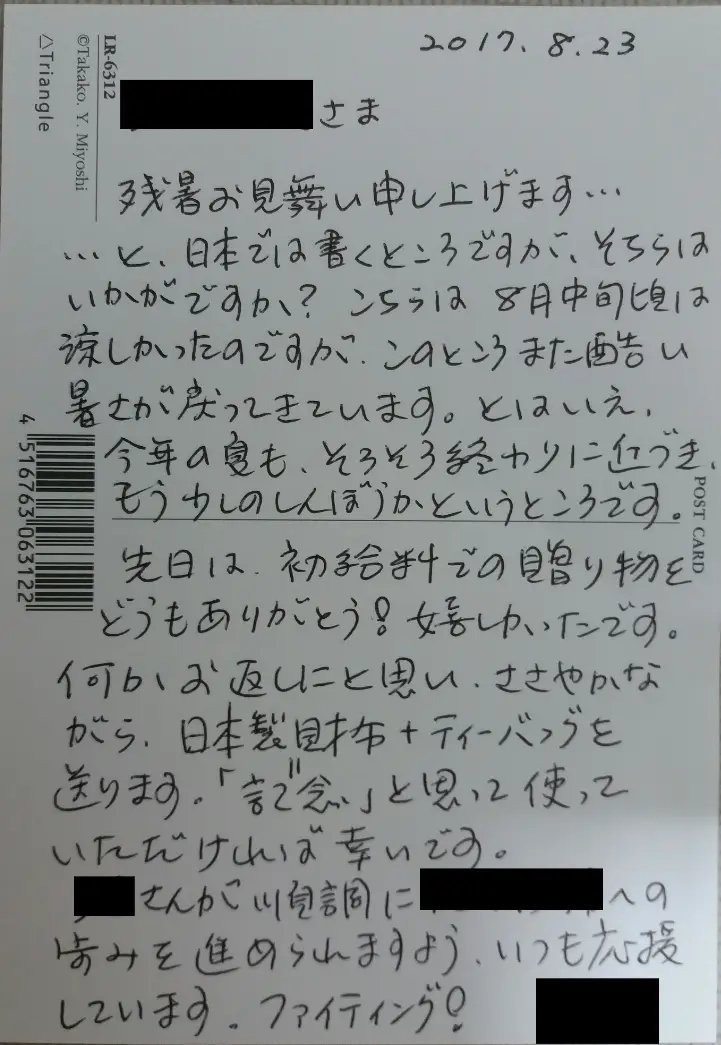 2017.8.23
LR-6312
©Takako. Y. Miyoshi
△Triangle
さま
残暑お見舞い申し上げます…
…と、日本では書くところですが、そちらは
いかがですか? こちらは 8月中旬頃は
涼しかったのですが、このところまた酷い
暑さが戻ってきています。とはいえ、
今年の夏も、そろそろ終わりに近づき、
もう少しのしんぼうかというところです。
POST CARD
4 516763 063122
先日は、初給料での贈り物を
どうもありがとう! 嬉しかったです。
何かお返しにと思い、ささやかな
がら、日本製財布+ティーバッグを
送ります。「記念」と思って使って
いただければ幸いです。
さんが順調に への
歩みを進められますよう、いつも応援
しています。ファイティング!